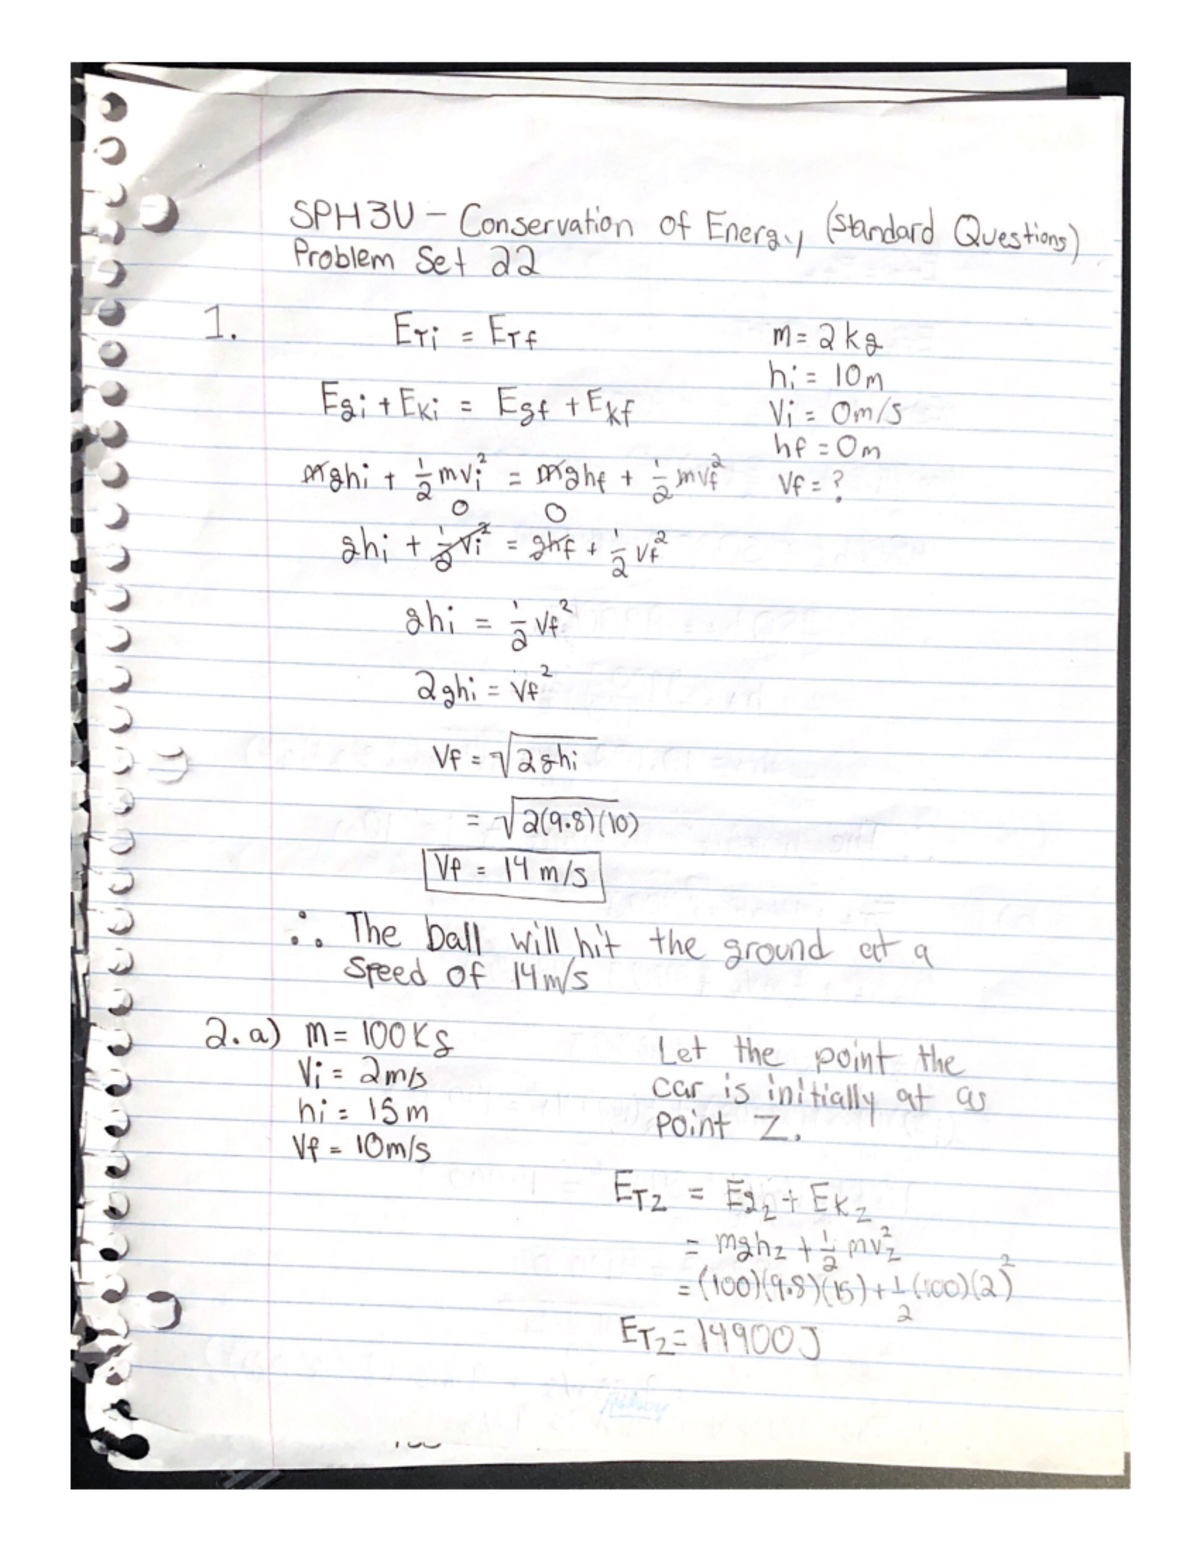 SPH3U - Conservation of Energy (Standard Questions)
Problem Set 22
1.
ETi = ETf
Egi + Eki = Egf + Ekf
mghi + 1/2 mvi² = mghf + 1/2 mvf²
0 0
ghi + 1/2 vi² = ghf + 1/2 vf²
ghi = 1/2 vf²
2ghi = vf²
Vf = √2ghi
= √2(9.8)(10)
Vf = 14 m/s
m = 2kg
hi = 10m
Vi = 0m/s
hf = 0m
Vf = ?
∴ The ball will hit the ground at a
speed of 14m/s
2. a) m = 100Kg
Vi = 2m/s
hi = 15m
Vf = 10m/s
Let the point the
car is initially at as
point Z.
ETZ = EgZ + EKZ
= mghZ + 1/2 mvZ²
= (100)(9.8)(15) + 1/2 (100)(2)²
ETZ = 14900J